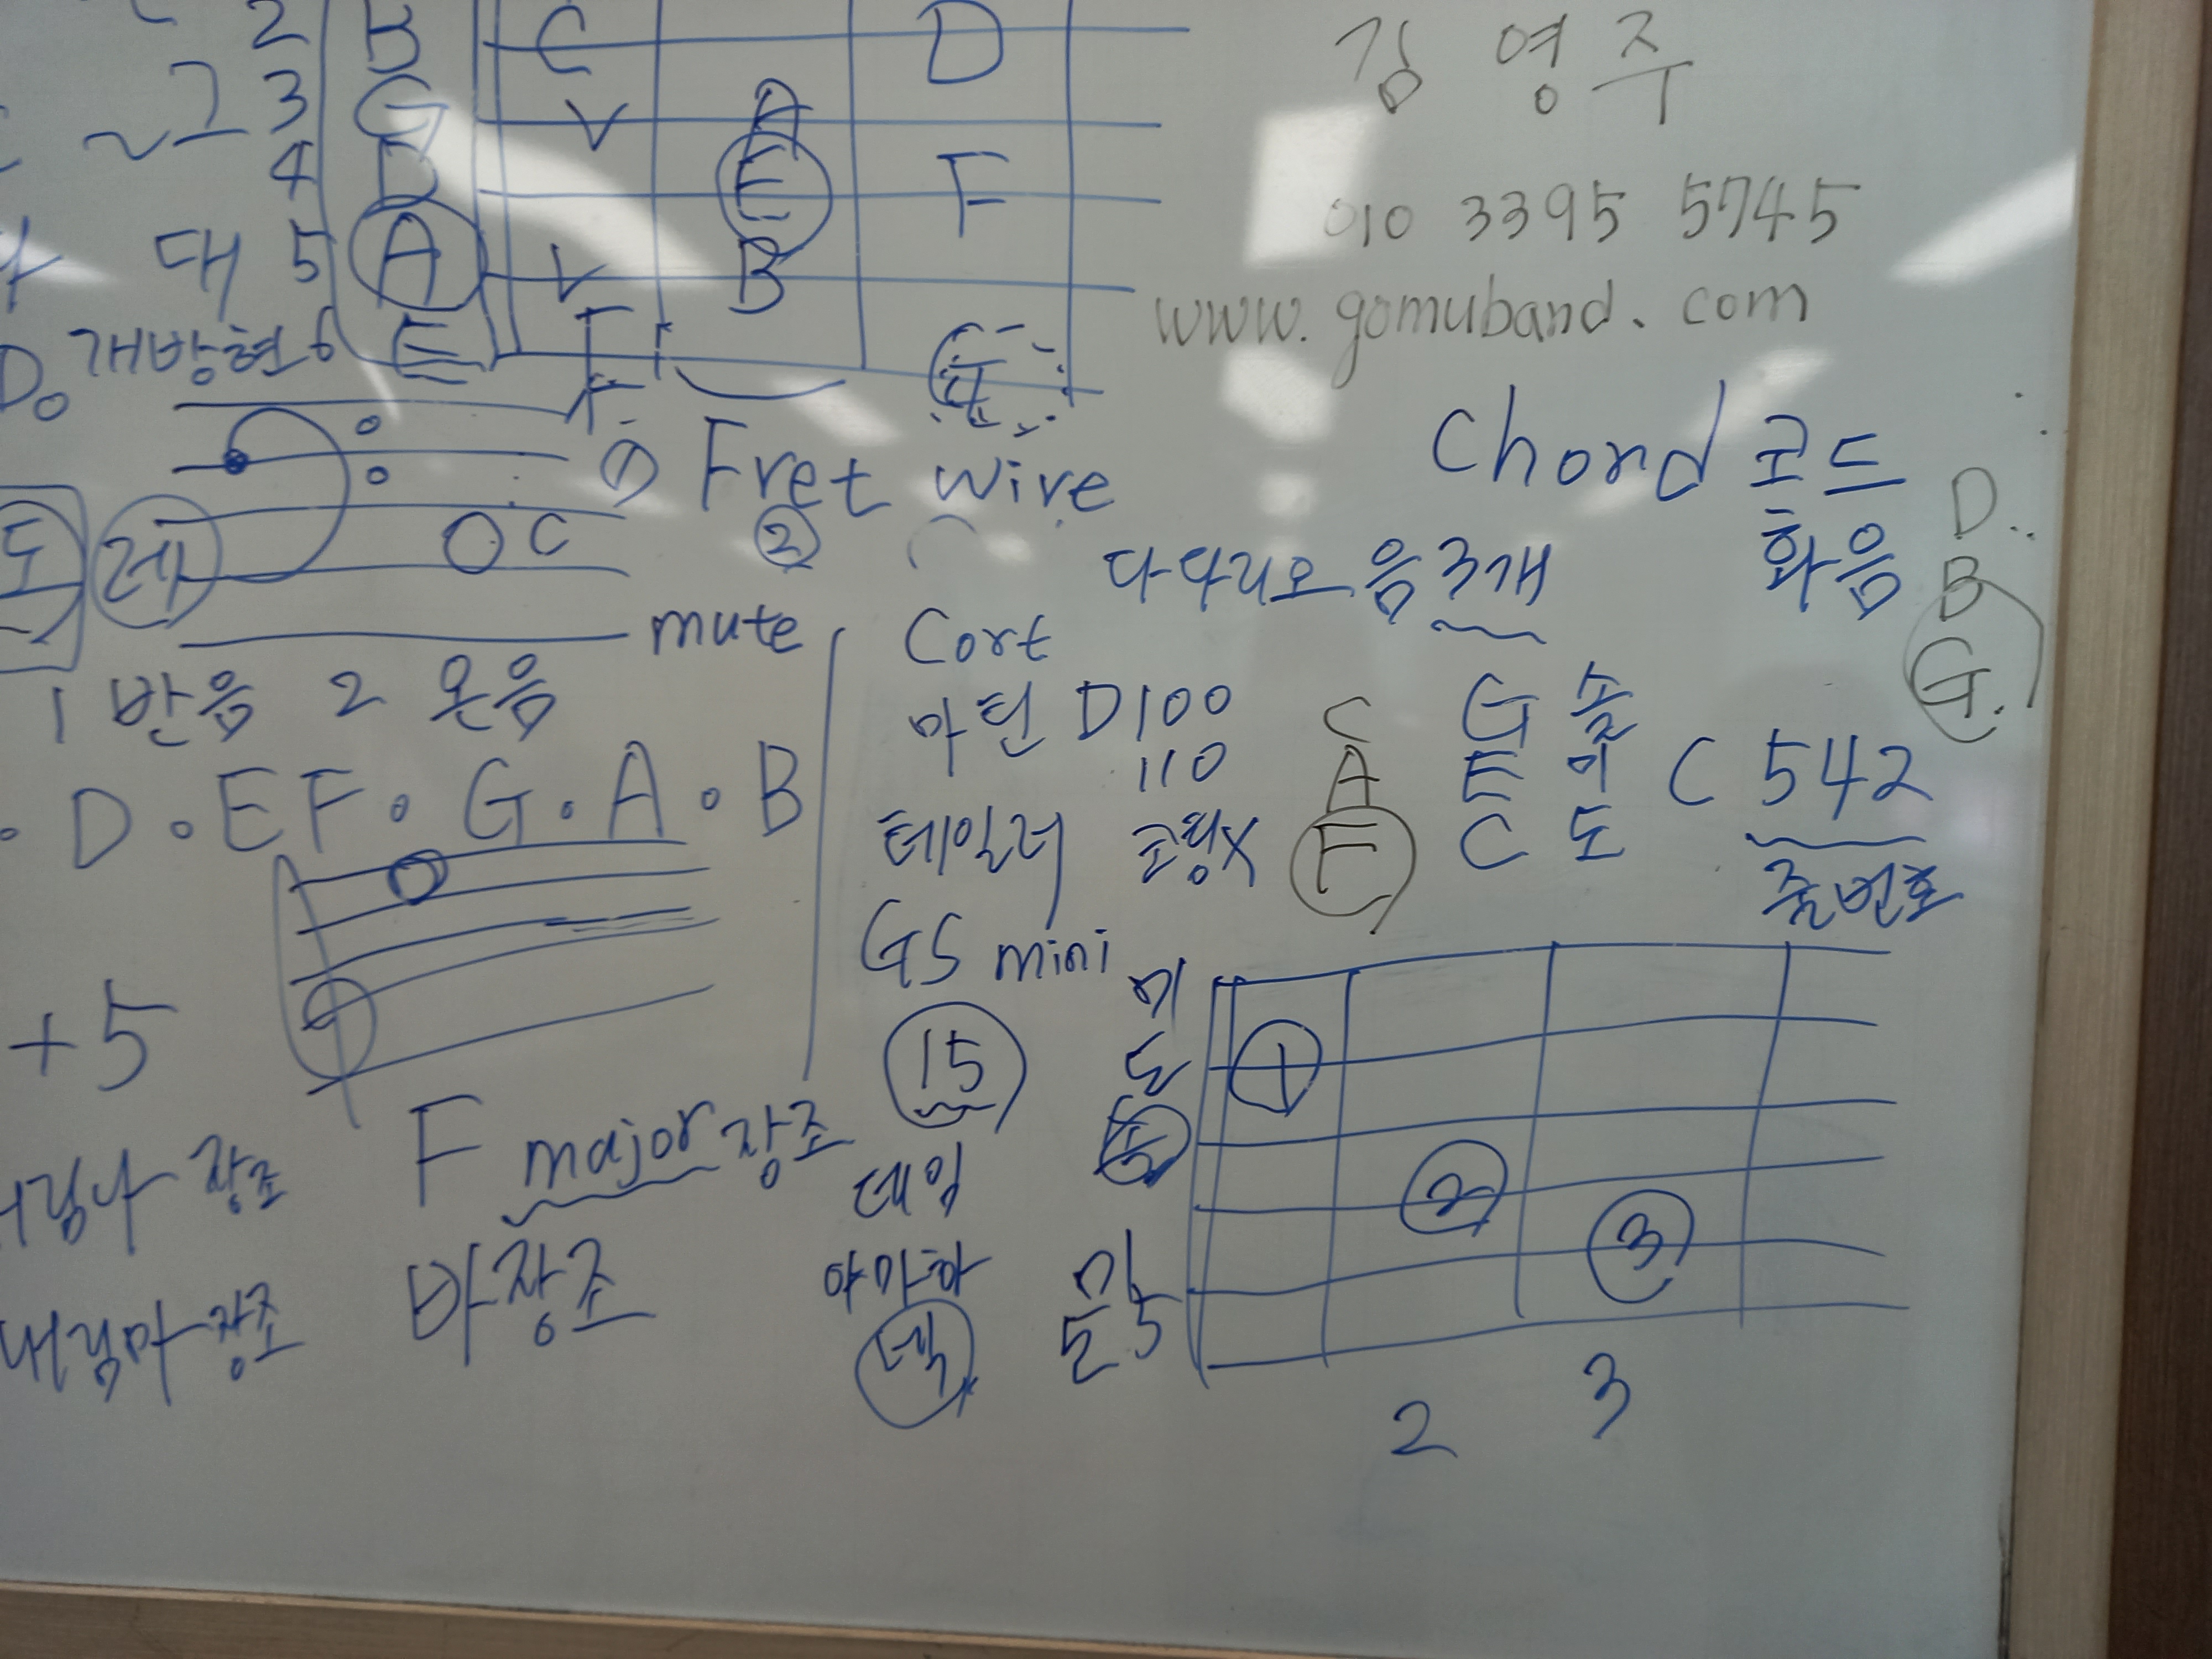 2 B C D
그 3 G V A
4 D E F
대 5 A V B
개방현 6 E F
김영주
010 3395 5745
www.gomuband.com
① Fret wire
②
C
레
mute
1 반음 2 온음
D · E F · G · A · B
+5
장조
F major 장조
장조
바장조
Chord 코드
화음
다다리오 음 3개
D
B
G
Cort
마틴 D100
110
테일러
GS mini
15
데임
야마하
넥
C G 솔
A E 미 C 542
F C 도
줄번호
미
도 1
솔
2
미 3
2 3